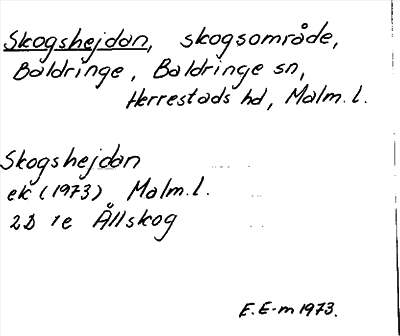 Skogshejdan, skogsområde,
Baldringe, Baldringe sn,
Herrestads hd, Malm. l.
Skogshejdan
ek (1973) Malm. l.
2D 1e Ållskog
E. E-m 1973.